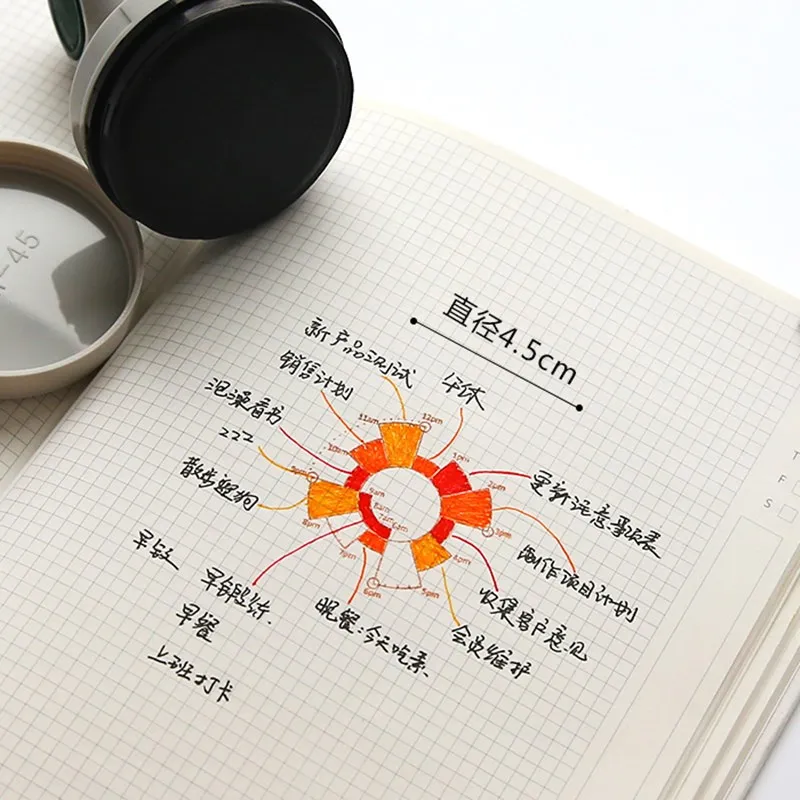 -45
直径4.5cm
新产品测试
午休
销售计划
泡澡看书
222
散步遛狗
早餐
上班打卡
晚餐:今天吃素
会员维护
收集客户意见
制作项目计划
更新注意事项表
11am
12pm
10am
1pm
2pm
9pm
9am
8am
7am
6am
3pm
8pm
7pm
4pm
6pm
5pm
T
F
S